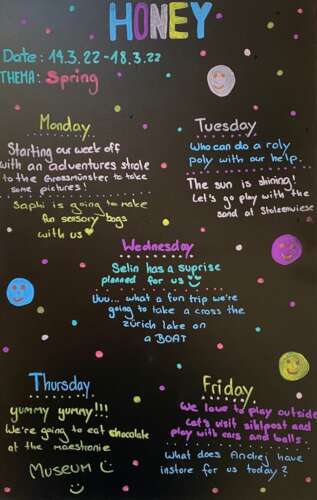 HONEY
Date: 14.3.22-18.3.22
THEMA: Spring
Monday
Starting our week off
with an adventures strole
to the Grossmünster to take
some pictures!
Saphi is going to make
fun sensory bags
with us
Tuesday
Who can do a roly
poly with our help.
The sun is shining!
Let's go play with the
sand at Stolzenwiese
Wednesday
Selin has a suprise
planned for us
Uuu... what a fun trip we're
going to take a cross the
zürich lake on
a BOAT
Thursday
yummy yummy!!!
We're going to eat chocolate
at the maestronie
MUSEUM
Friday
We love to play outside
Let's visit sihlpost and
play with cars and balls.
What does Andrej have
instore for us today?